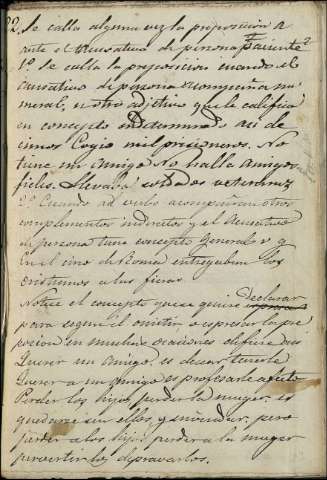 22. Se calla alguna vez la preposicion a
ante el acusativo de persona Paciente
1º se calla la preposicion cuando el
acusativo de persona acompaña nu
meral, u otro adjetivo que le califica
en concepto indeterminado asi de
cimos Cogio mil prisioneros. No
tiene mi amigo No halla amigos
fieles. Llevaba soldados veteranos
2º Cuando al verbo acompañan otros
complementos indirectos y el acusativo
de persona tiene concepto General v g
En el circo de Roma entregaban los
cristianos a las fieras.
Notese el concepto que se quiere declarar
para segun el omitir, o espresar la pre
posicion en muchas ocasiones difiere decir
Querer un amigo. es desear tenerle
Querer a un amigo es profesarle afecto
Perder los hijos, perder la muger. es
quedarse sin ellos, y enviudar. pero
perder a los hijos perder a la muger
pervertirlos depravarlos.